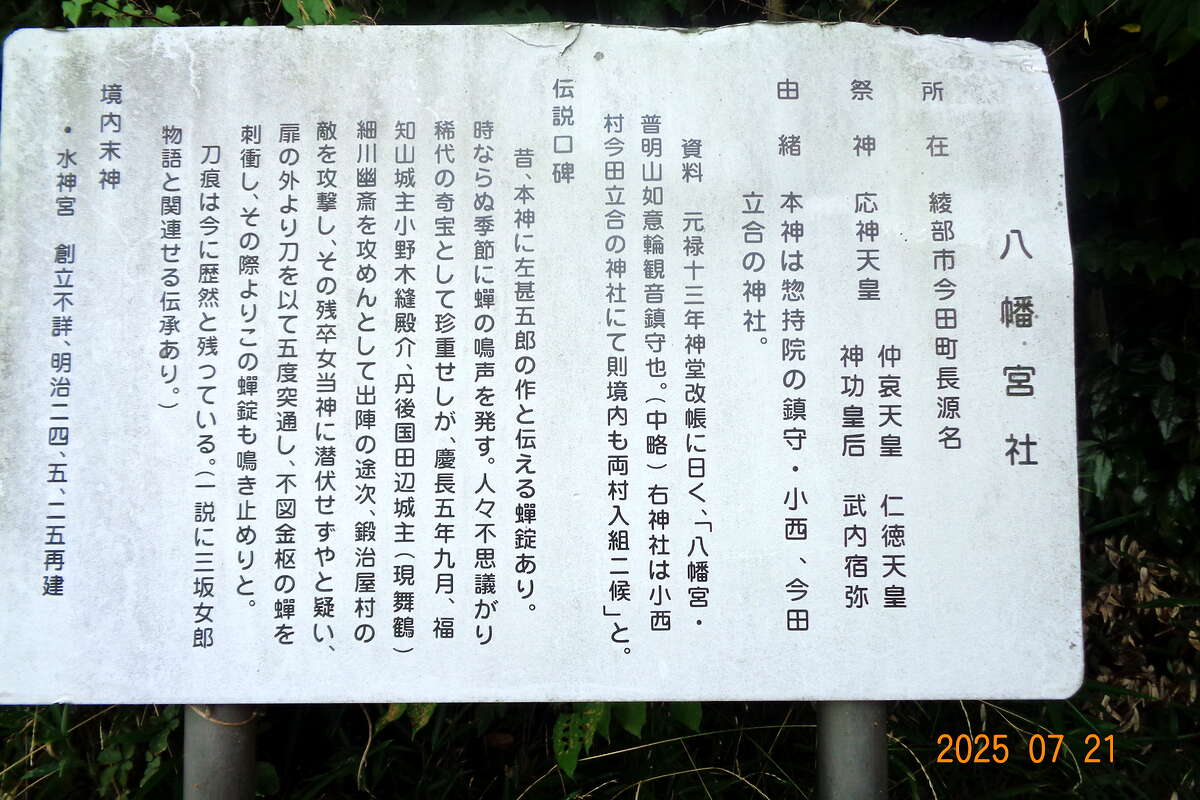 八幡宮社
所在 綾部市今田町長源名
祭神 応神天皇 仲哀天皇 仁徳天皇
神功皇后 武内宿弥
由緒 本神は惣持院の鎮守・小西、今田
立合の神社。
資料 元禄十三年神堂改帳に日く、「八幡宮・
普明山如意輪観音鎮守也。(中略)右神社は小西
村今田立合の神社にて則境内も両村入組二候」と。
伝説口碑
昔、本神に左甚五郎の作と伝える蟬錠あり。
時ならぬ季節に蟬の鳴声を発す。人々不思議がり
稀代の奇宝として珍重せしが、慶長五年九月、福
知山城主小野木縫殿介、丹後国田辺城主(現舞鶴)
細川幽斎を攻めんとして出陣の途次、鍛治屋村の
敵を攻撃し、その残卒女当神に潜伏せずやと疑い、
扉の外より刀を以て五度突通し、不図金枢の蟬を
刺衝し、その際よりこの蟬錠も鳴き止めりと。
刀痕は今に歴然と残っている。(一説に三坂女郎
物語と関連せる伝承あり。)
境内末神
・水神宮 創立不詳、明治二四、五、二五再建
2025 07 21